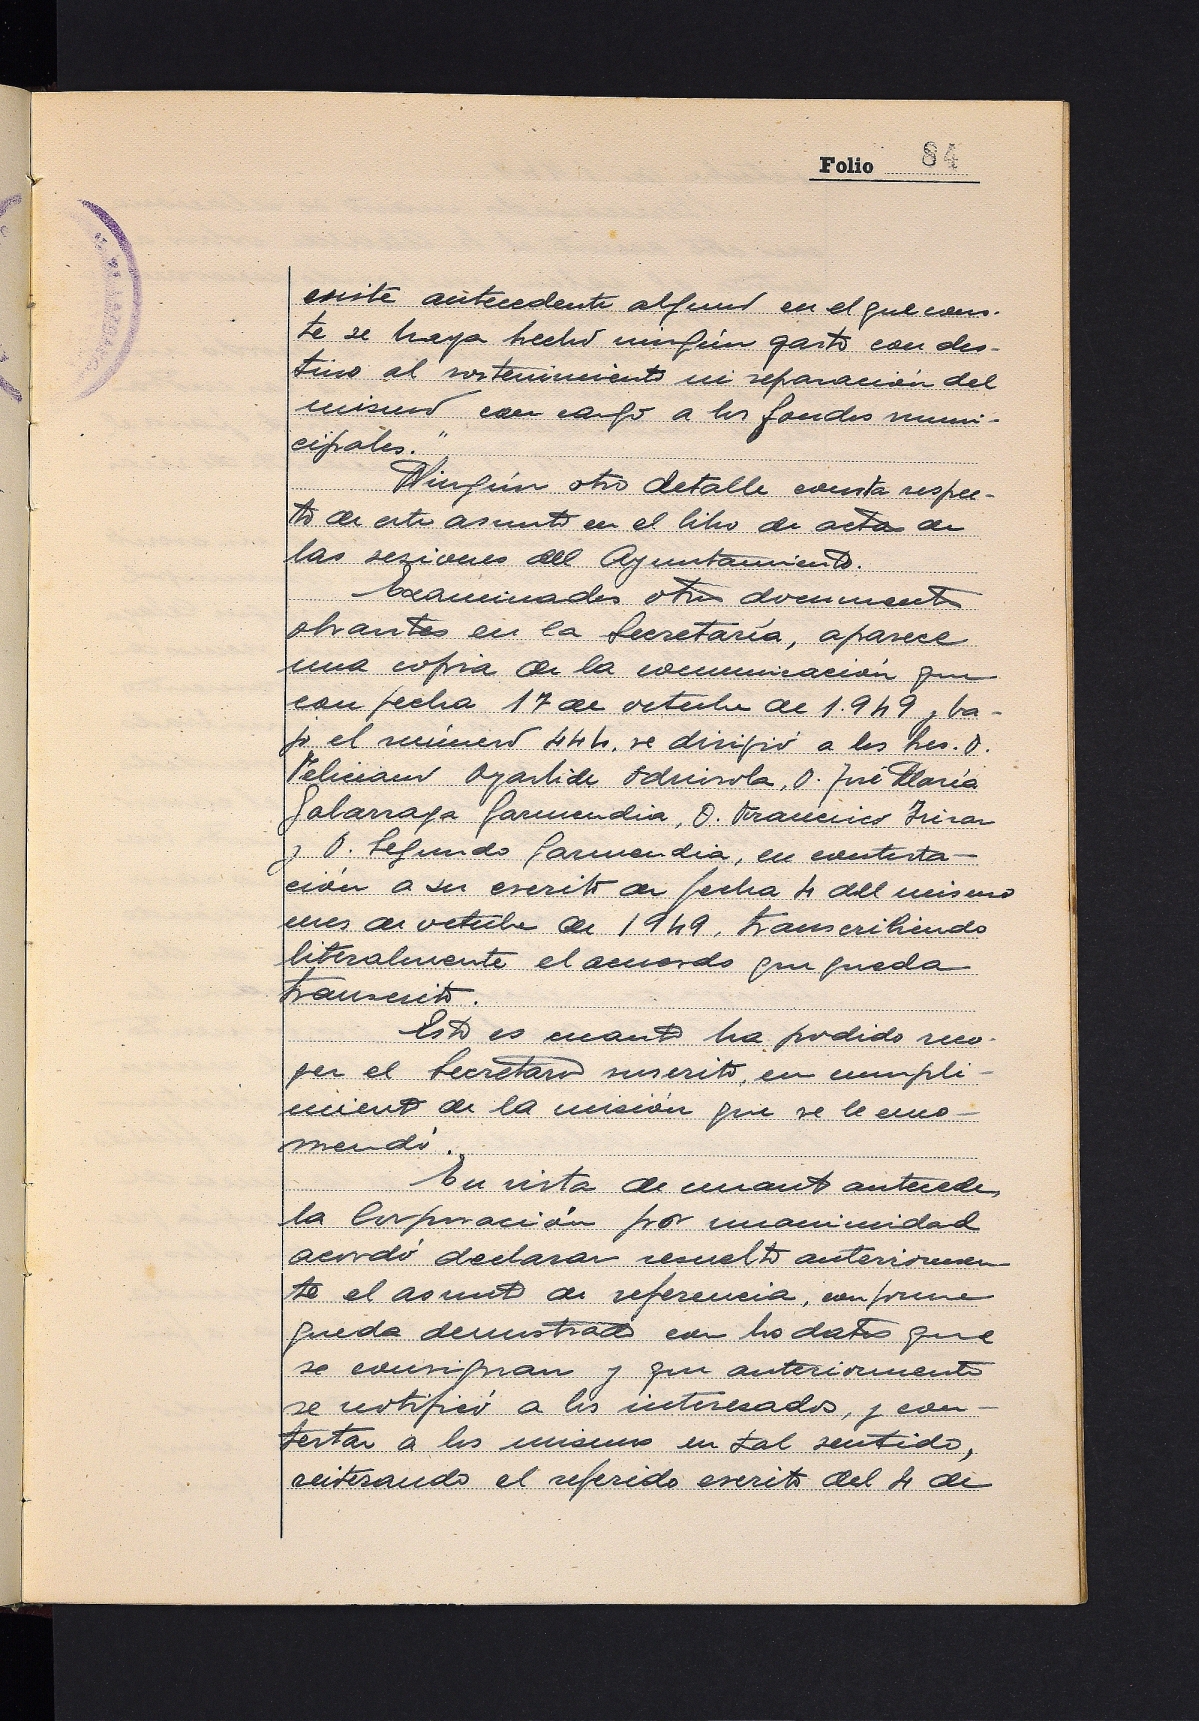 Folio 84
existe antecedente alguno en el que cons-
te se haya hecho ningún gasto con des-
tino al sostenimiento ni reparación del
mismo con cargo a los fondos muni-
cipales."
Ningún otro detalle consta respec-
to de este asunto en el libro de actas de
las sesiones del Ayuntamiento.
Examinados otros documentos
obrantes en la Secretaría, aparece
una copia de la comunicación que
con fecha 17 de octubre de 1.949 y ba-
jo el número 444, se dirigió a los Sres. D.
Feliciano Oyarbide Odriozola, D. José María
Galarraga Garmendia, D. Francisco Irizar
y D. Segundo Garmendia, en contesta-
ción a su escrito de fecha 4 del mismo
mes de octubre de 1949, transcribiendo
literalmente el acuerdo que queda
transcrito.
Esto es cuanto ha podido reco-
ger el Secretario suscrito, en cumpli-
miento de la misión que se le enco-
mendó.
En vista de cuanto antecede,
la Corporación por unanimidad
acordó declarar resuelto anteriormen-
te el asunto de referencia, conforme
queda demostrado con los datos que
se consignan y que anteriormente
se notificó a los interesados, y con-
testar a los mismos en tal sentido,
reiterando el referido escrito del 4 de